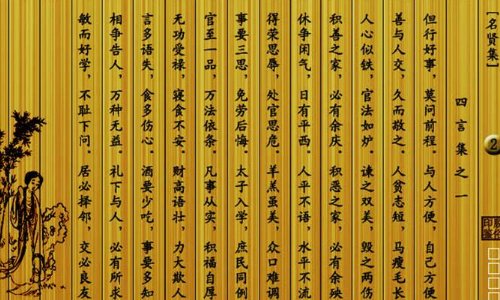 [名贤集]
2
四言集之一
但行好事，莫问前程。与人方便，自己方便
善与人交，久而敬之。人贫志短，马瘦毛长
人心似铁，官法如炉。谏之双美，毁之两伤
积善之家，必有余庆。积恶之家，必有余殃
休争闲气，日有平西。人平不语，水平不流
得荣思辱，处官思危。羊羔虽美，众口难调
事要三思，免劳后悔。太子入学，庶民同例
官至一品，万法依条。凡事从实，积福自厚
无功受禄，寝食不安。财高语壮，力大欺人
言多语失，食多伤心。酒要少吃，事要多知
相争告人，万种无益。礼下与人，必有所求
敏而好学，不耻下问。居必择邻，交必良友